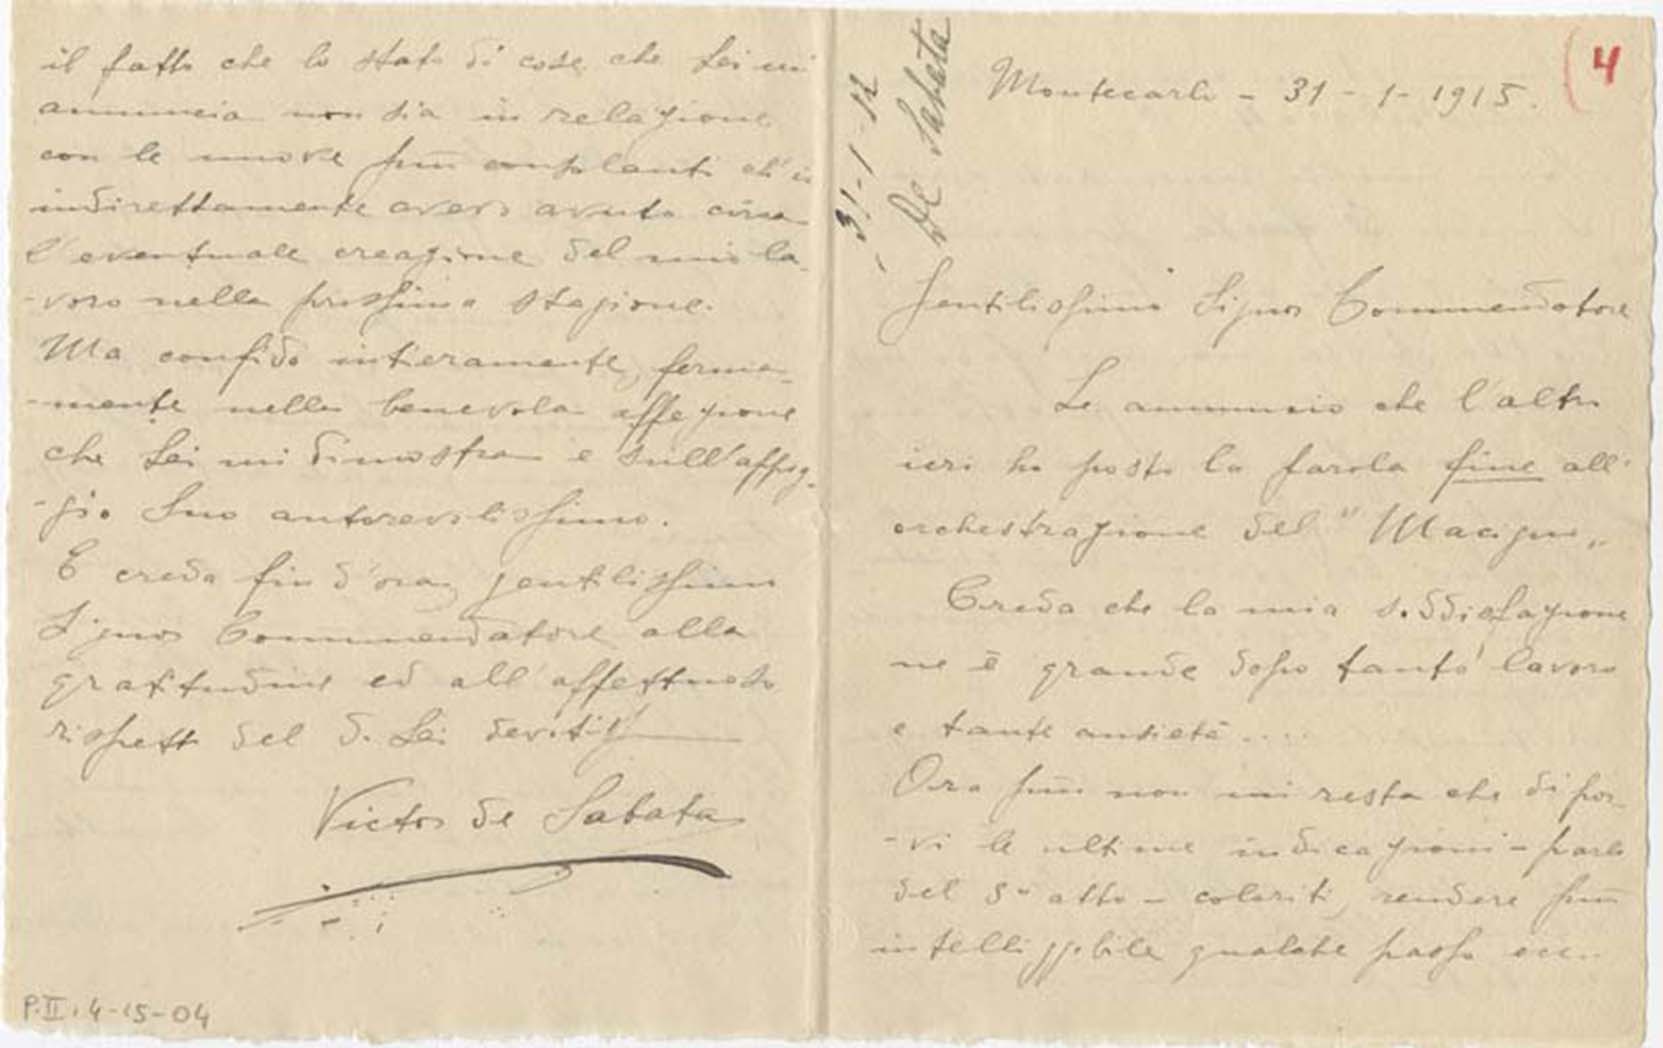 il fatto che lo stato di cose che Lei mi
annuncia non sia in relazione
con le nuove più consolanti ch'io
indirettamente avevo avuto circa
l'eventuale creazione del mio la-
-voro nella prossima stagione.
Ma confido intieramente, ferma-
-mente nella benevola affezione
che Lei mi dimostra e sull'appog-
-gio Suo autorevolissimo.
E creda fin d'ora, gentilissimo
Signor Commendatore alla
gratitudine ed all'affettuoso
rispetto del d. Lei
Victor de Sabata
P.II.4-15-04
31-1-
De Sabata
4
Montecarlo - 31 - 1 - 1915.
Gentilissimo Signor Commendatore
Le annuncio che l'altro
ieri ho posto la parola fine all'
orchestrazione del "Macigno„
Creda che la mia soddisfazione
ne è grande dopo tanto lavoro
e tante ansietà....
Ora più non mi resta che di por-
-vi le ultime indicazioni - parlo
del 3º atto - coloriti, rendere più
intelliggibile qualche passo ecc..